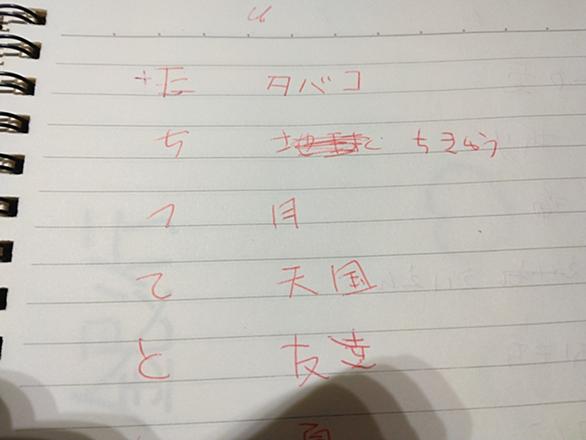 た タバコ
ち ちきゅう
つ 月
て 天国
と 友達